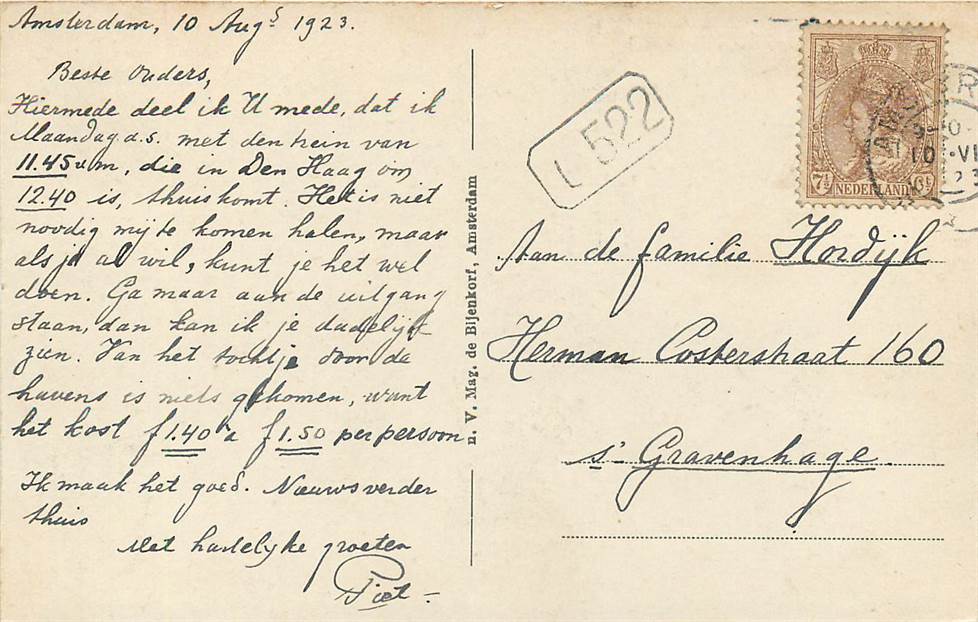 Amsterdam, 10 Augs 1923.
Beste Ouders,
Hiermede deel ik U mede, dat ik
Maandag a.s. met den trein van
11.45 v.m, die in Den Haag om
12.40 is, thuiskomt. Het is niet
noodig mij te komen halen, maar
als je al wil, kunt je het wel
doen. Ga maar aan de uitgang
staan, dan kan ik je dadelijk
zien. Van het tochtje door de
havens is niets gekomen, want
het kost f 1.40 à f 1.50 per persoon
Ik maak het goed. Nieuws verder
thuis
Met hartelijke groeten
Piet
n. V. Mag. de Bijenkorf, Amsterdam
L 522
7½ NEDERLAND 7½
10 VI
23
Aan de familie Hordijk
Herman Costerstraat 160
s' Gravenhage.